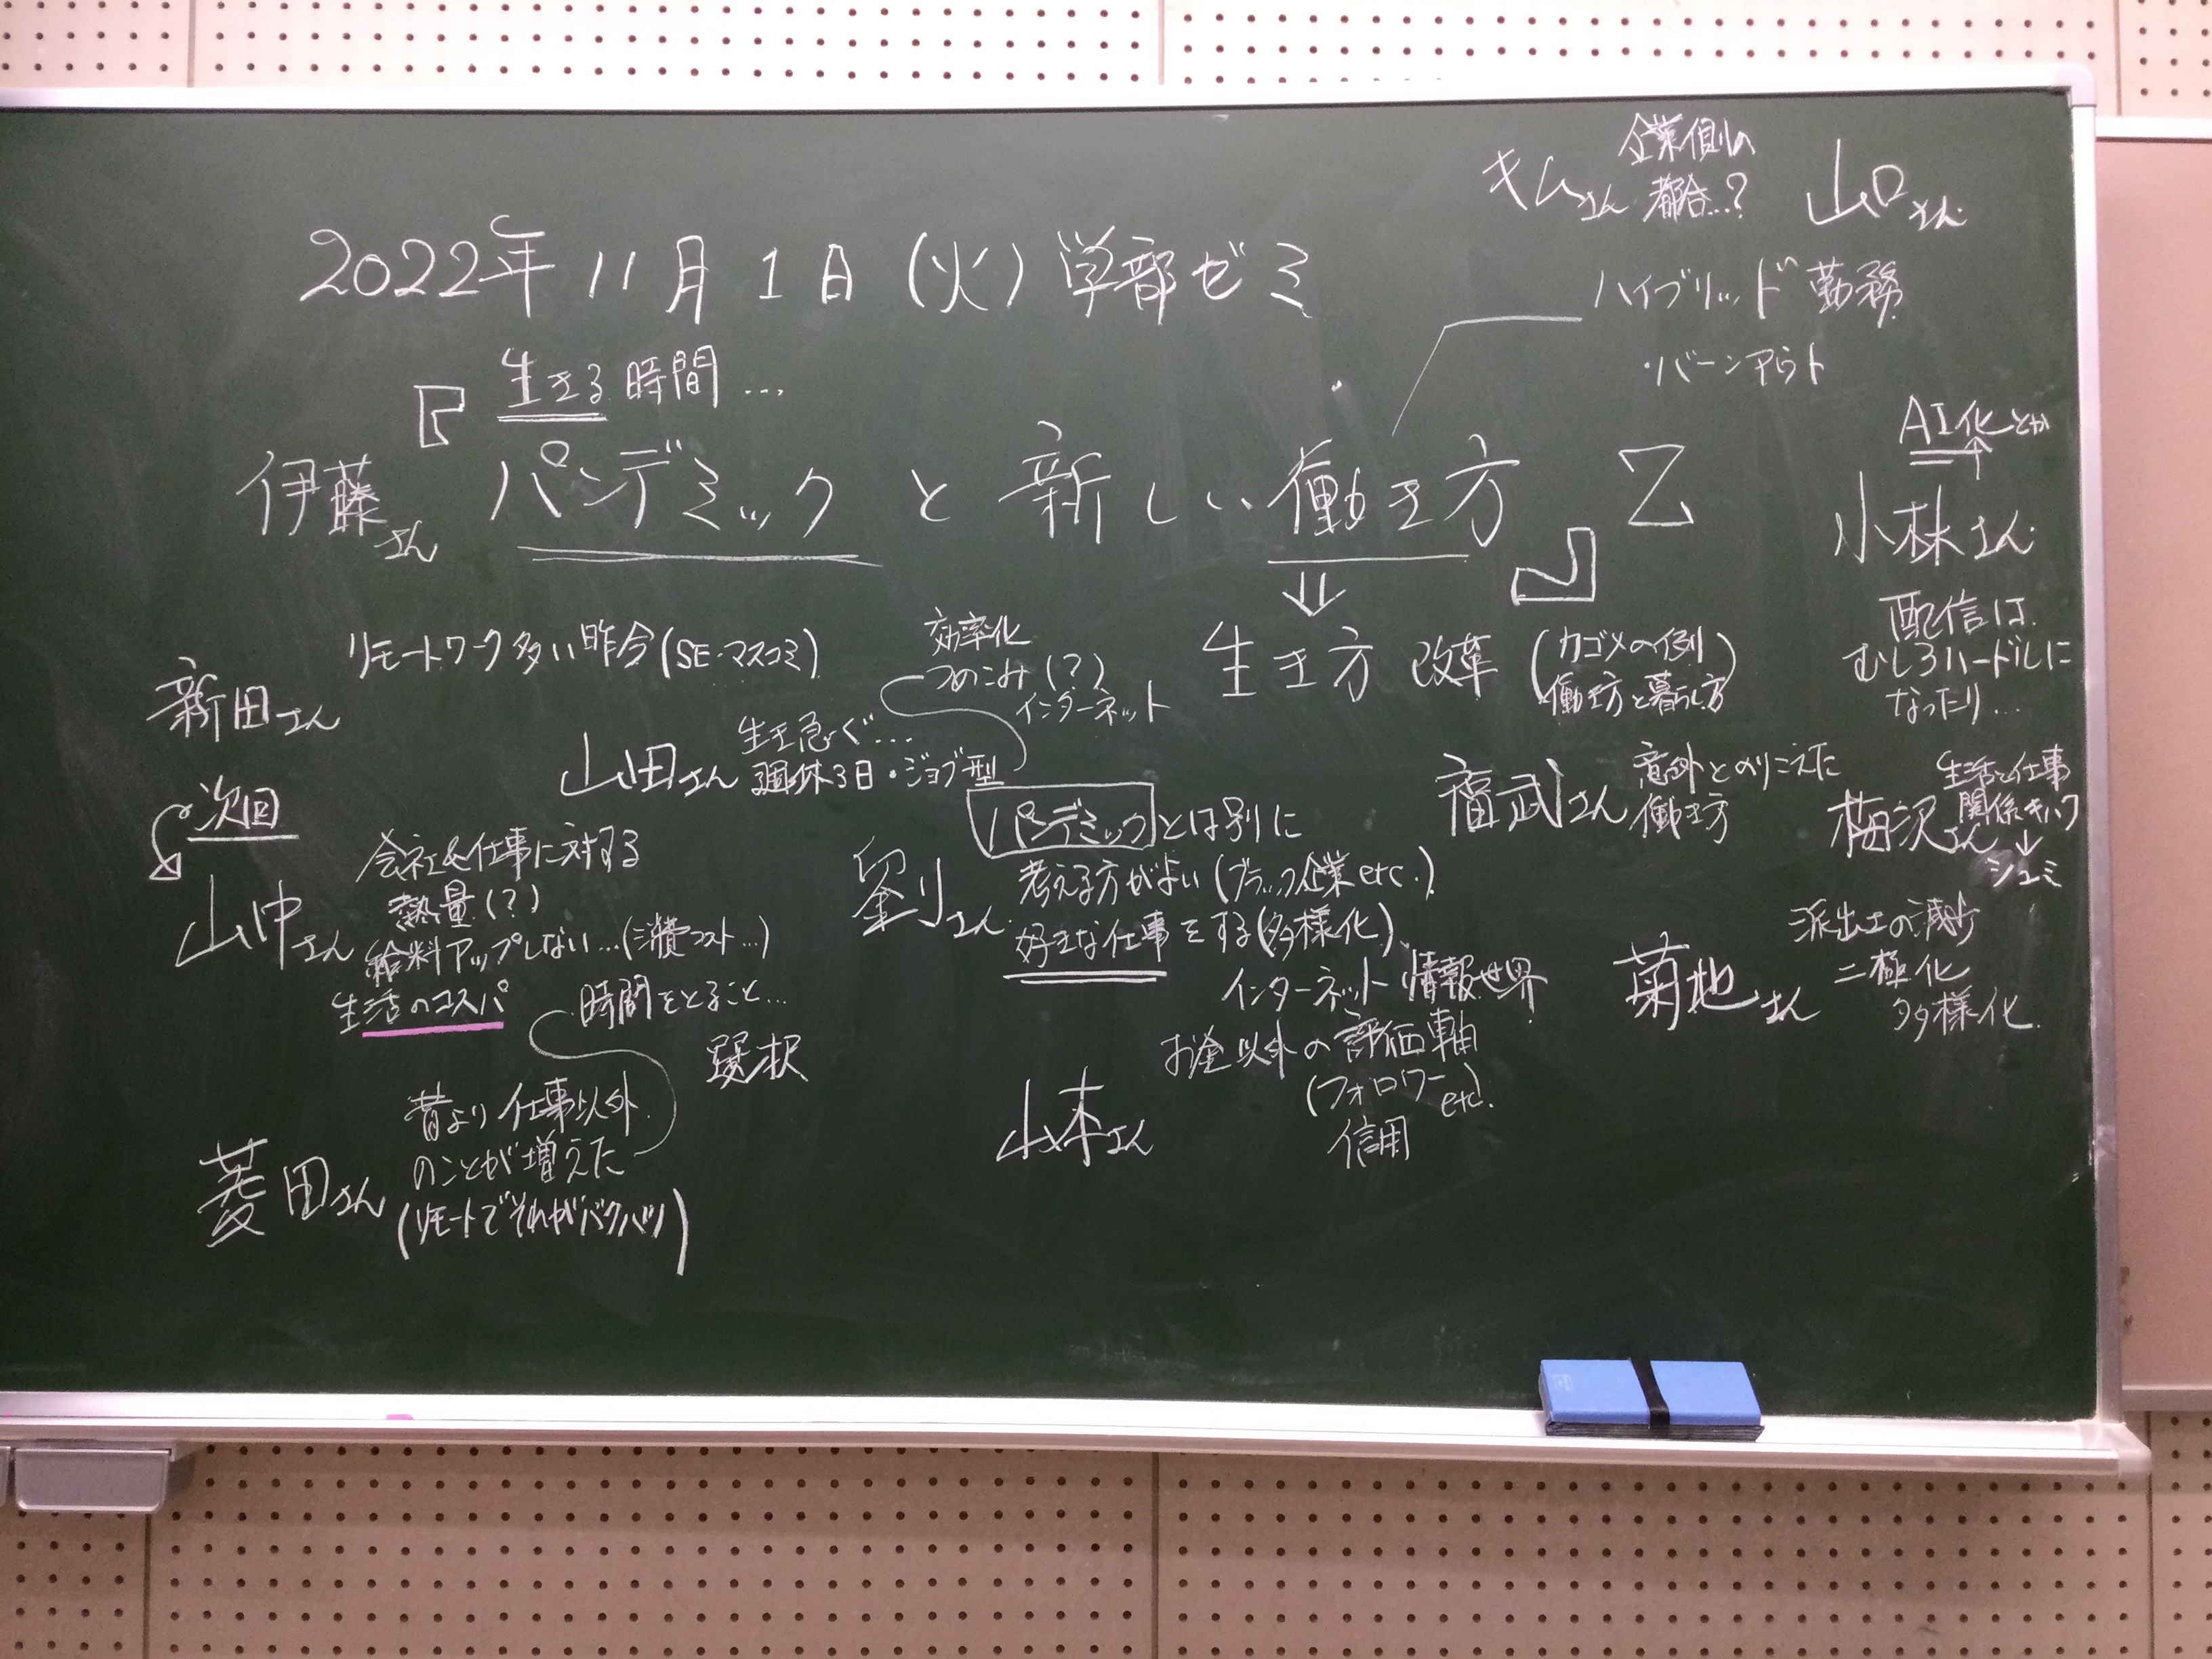 企業側の
キムさん 都合…?
山口さん
2022年 11月 1日 (火) 学部ゼミ
ハイブリッド勤務
・バーンアウト
『生きる時間…
伊藤さん
パンデミックと新しい働き方 2』
AI化とか
小林さん
配信は
むしろハードルに
なったり…
⇓
生き方改革 (カゴメの例
働き方と暮らし方)
リモートワーク多い昨今(SE・マスコミ)
新田さん
効率化
つめこみ(?)
インターネット
山田さん
生き急ぐ…
週休3日・ジョブ型
福武さん
意外とのりこえた
働き方
梅沢さん
生活と仕事
関係キハク
↓
シュミ
次回
山中さん
会社&仕事に対する
熱量(?)
給料アップしない…(消費コスト…)
生活のコスパ
劉さん
パンデミックとは別に
考える方がよい(ブラック企業etc.)
好きな仕事をする(多様化)
菊地さん
派出土の減少
二極化
多様化
時間をとること…
選択
菱田さん
昔より仕事以外
のことが増えた
(リモートでそれがバクハツ)
山本さん
インターネット情報世界
お金以外の評価軸
(フォロワーetc)
信用